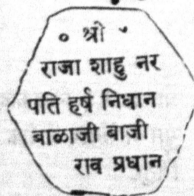 ० श्री ॰
राजा शाहु नर
पति हर्ष निधान
बाळाजी बाजी
राव प्रधान